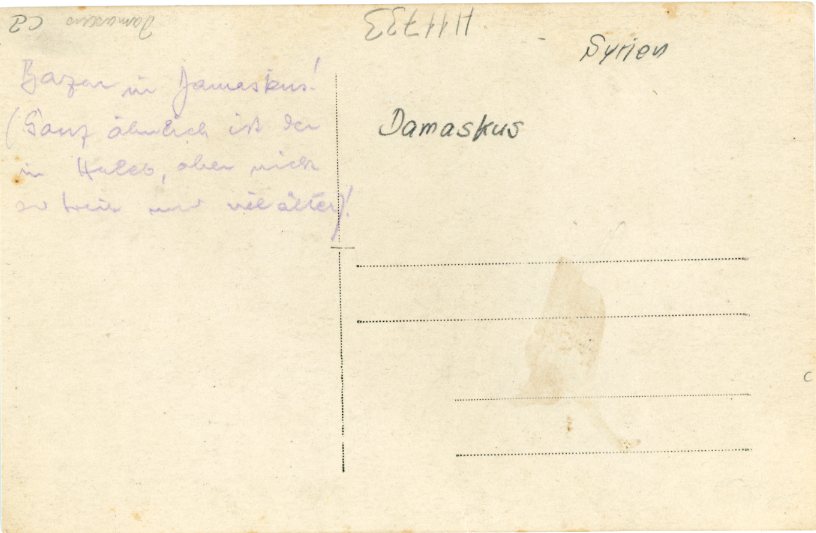 Damascus
CB
H14733
Syrien
Bazar in Damaskus!
(Ganz ähnlich ist der
in Haleb, aber nicht
so breit und viel älter)!
Damaskus